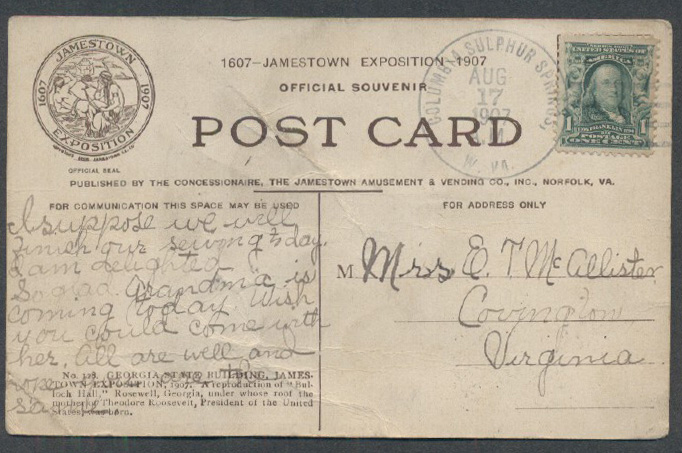 JAMESTOWN
1607 1907
EXPOSITION
OFFICIAL SEAL
1607—JAMESTOWN EXPOSITION—1907
OFFICIAL SOUVENIR
POST CARD
COLUMBIA SULPHUR SPRINGS,
AUG
17
1907
W. VA.
FRANKLIN
1 1
POSTAGE
ONE CENT
PUBLISHED BY THE CONCESSIONAIRE, THE JAMESTOWN AMUSEMENT & VENDING CO., INC., NORFOLK, VA.
FOR COMMUNICATION THIS SPACE MAY BE USED
FOR ADDRESS ONLY
I suppose we will
finish our sewing today.
I am delighted
So glad Grandma is
coming today Wish
you could come with
her. All are well and
M Mrs E. T McAllister
Covington
Virginia
No. 128. GEORGIA STATE BUILDING, JAMES-
TOWN EXPOSITION, 1907. A reproduction of "Bul-
loch Hall," Rosewell, Georgia, under whose roof the
mother of Theodore Roosevelt, President of the United
States, was born.